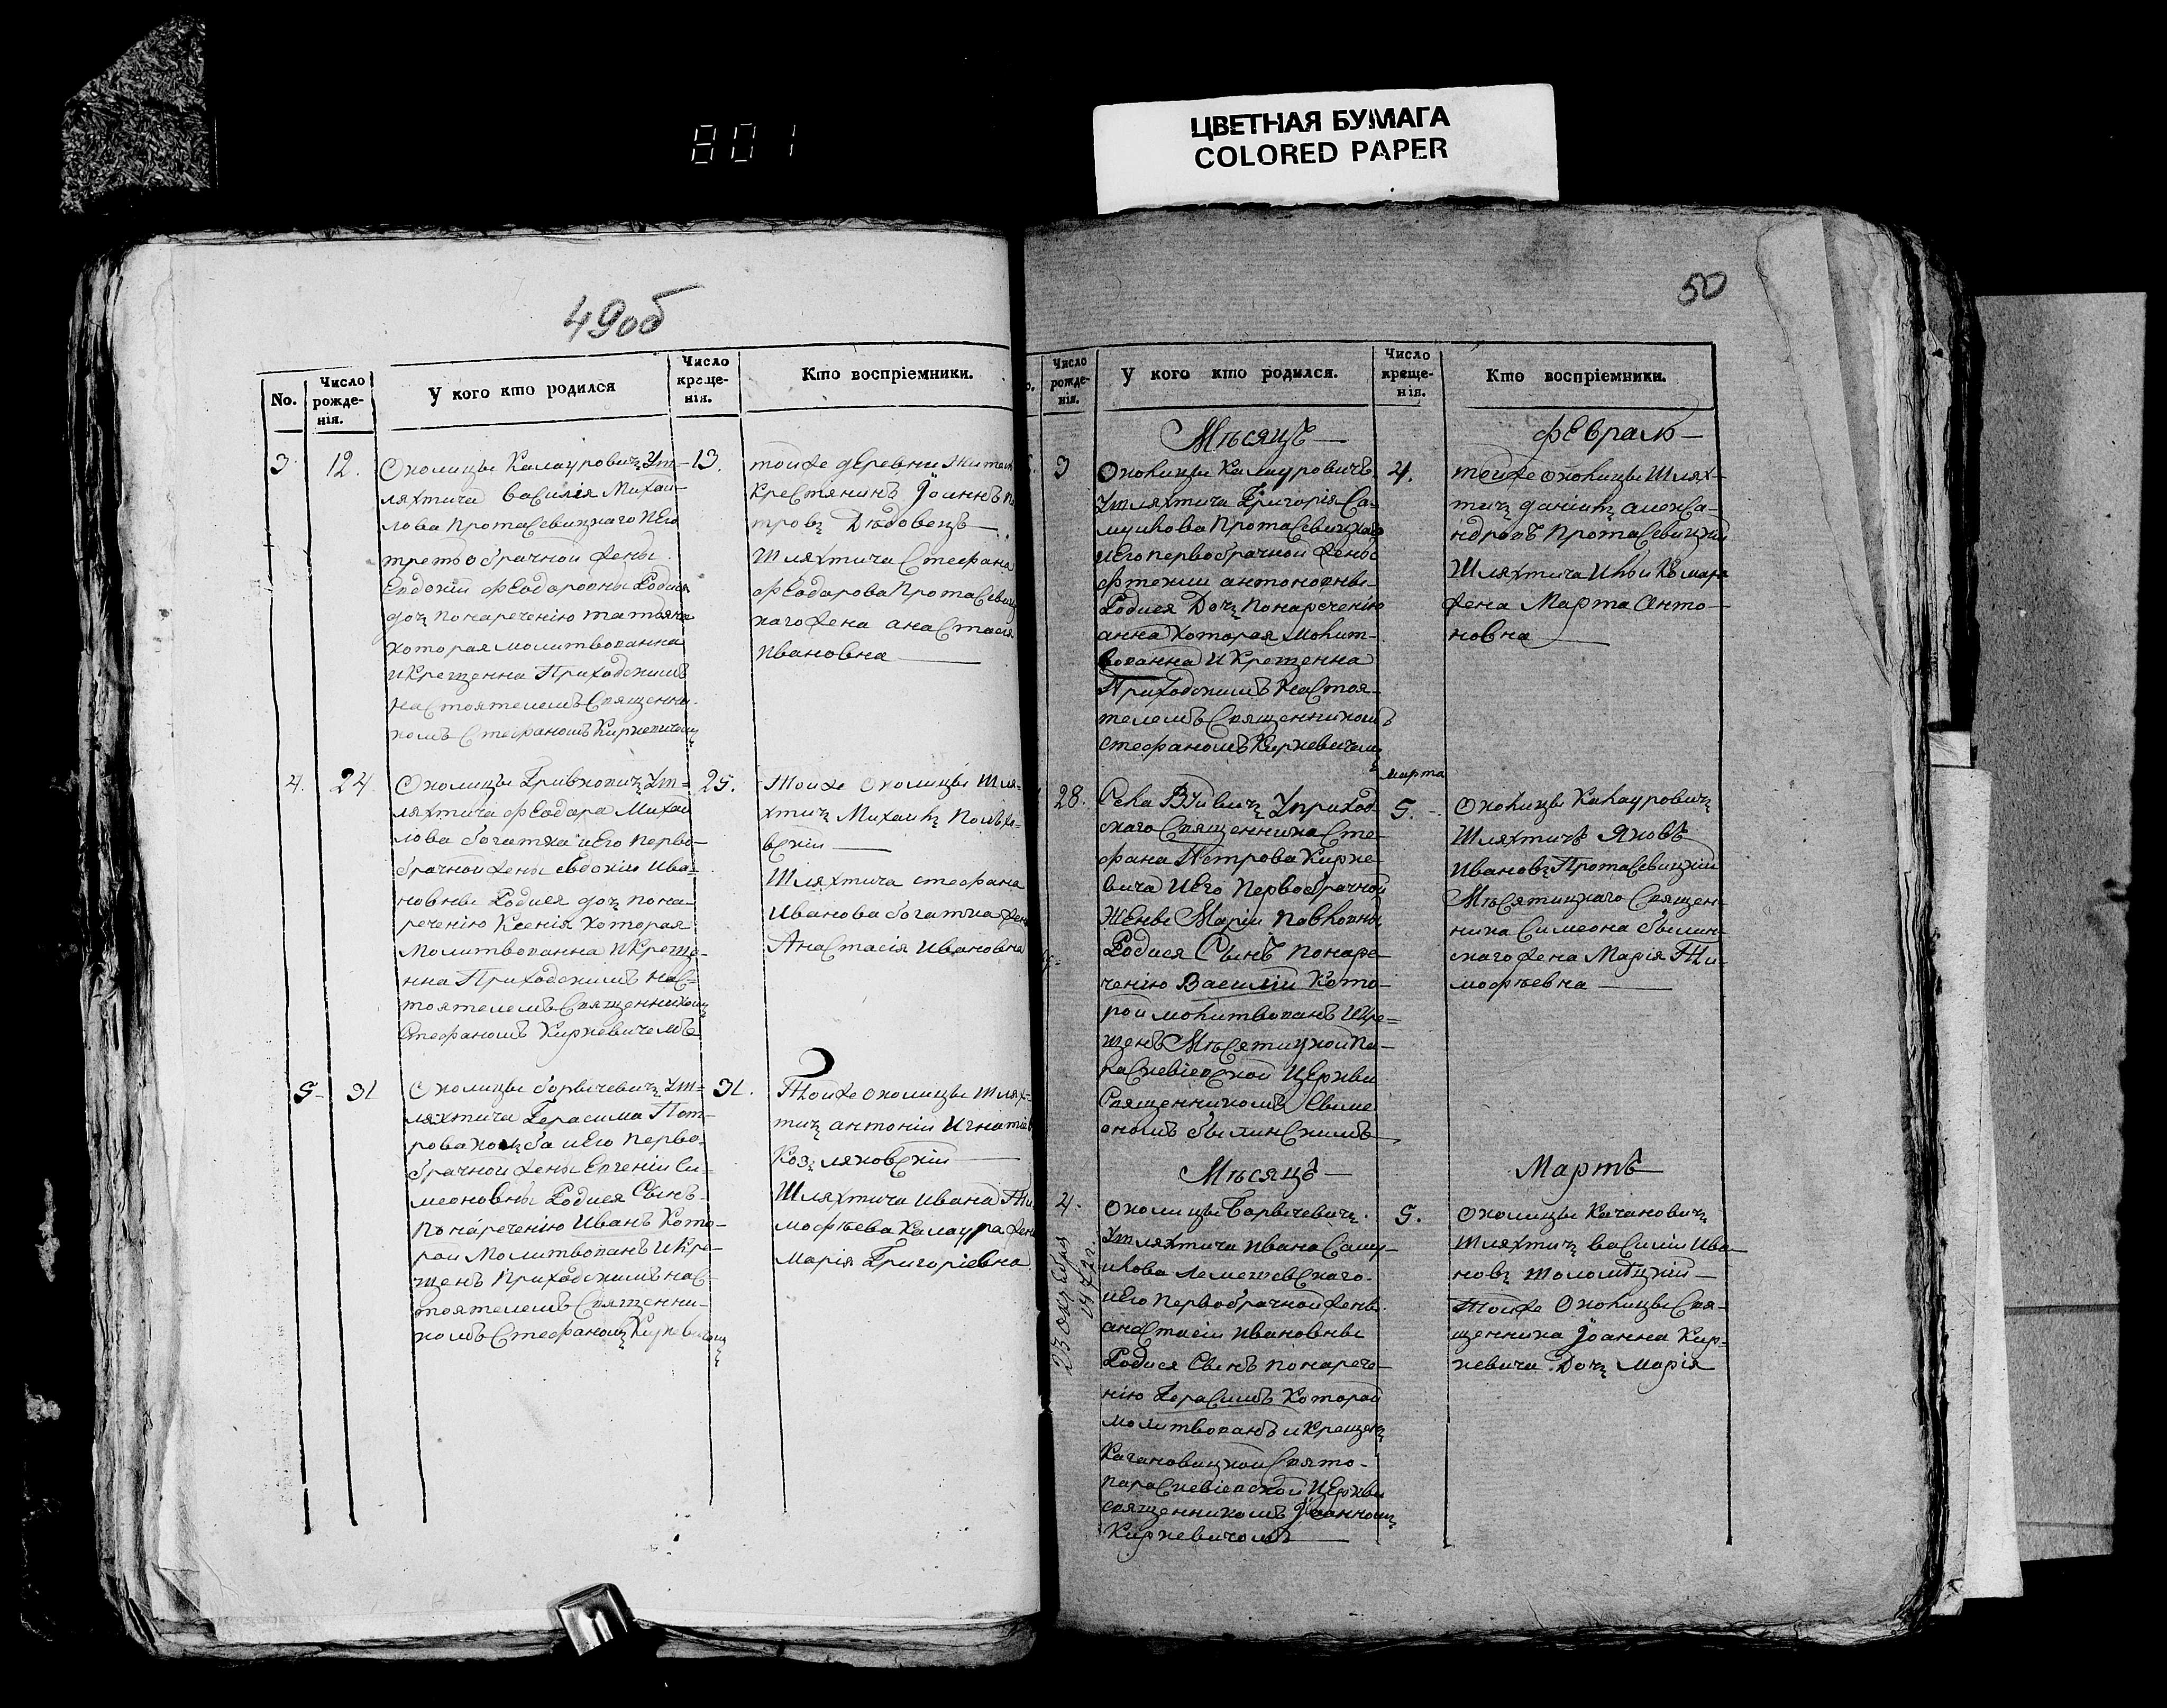 801
ЦВЕТНАЯ БУМАГА
COLORED PAPER
49об
No.
Число рожде-нія.
У кого кто родился
Число креще-нія.
Кто воспріемники.
3
12.
Околицы Калаурович Ушляхтича Василія Михай-
лова Протасевицкаго иЕго
третьобрачной жены
Евдокіи Феодоровны Родися
доч понареченію татьяна
которая молитвованна
иКрещенна Приходскимъ
настоятелемъ Священни-
комъ Стефаномъ Киркевичем
13.
тойже деревни
Крестянинъ Іоаннъ
тров Дѣдовецъ
Шляхтича Стефана
Феодорова Протасевиц
каго жена анастасія
ивановна
4.
24
Околицы Гривкович Уш=
ляхтича Феодора Михай
лова богатка иЕго перво-
брачной жены евдокіи ива=
новны Родися доч пона-
реченію Ксенія которая
Молитвованна иКреще-
нна Приходскимъ нас=
тоятелемъ Священником
Стефаномъ Киркевичемъ
25.
Тойже Околицы шля-
хтич Михаил
вскій
Шляхтича стефана
Иванова богатка жен
Анастасія Ивановна
5-
31
Околицы борвичевич Уш=
ляхтича Герасима Пет-
рова иЕго перво-
брачной жены Евгеніи Си-
меоновны Родися Сынъ
понареченію Иванъ Кото-
рой Молитвованъ иКре-
щенъ Приходскимъ нас-
тоятелемъ Священни-
комъ Стефаном Киркевичем
31.
Тойже околицы шлях-
тич антоній Игнатіев
Козляковскій
Шляхтича ивана Ти
мофѣева Калаура жен
Марія Григоріевна
50
Число рожде-нія.
У кого кто родился.
Число креще-нія.
Кто воспріемники.
Мѣсяцъ
Февраль
3
Околицы Калауровичъ
Ушляхтича Григорія Са-
муилова Протасевицкаго
иЕго первобрачной жены
Фтекли антоновны
Родися Доч понареченію
анна Которая Молит-
вованна и Крещенна
Приходскимъ Настоя-
телемъ Священникомъ
стефаномъ Киркевичем
4.
тойже околицы Шлях-
тич даніил алекса-
ндровъ Протасевицкій
Шляхтича Ильи Комара
жена Марта Анто-
новна
28.
Села Уприход-
скаго Священника Сте-
фана Петрова Кирке-
вича иЕго Первобрачной
Жены Маріи Павловны
Родися Сынъ Понаре-
ченію Василій Кото-
рой молитвованъ иКре=
щенъ Мѣсятицкой Па-
раскевіевской Церкви
Священникомъ Симе
ономъ былинскимъ
марта
5.
Околицы Калаурович
Шляхтичъ Яковъ
Иванов Протасевицкій
Мѣсятицкаго Священ-
ника Симеона былин-
скаго жена Марія Ти-
мофѣевна
Мѣсяцъ
Мартъ
4.
Околицы Барвичевич
Ушляхтича ивана Саму-
илова Лемешевскаго
иЕго первобрачной жены
анастасіи ивановны
Родися Сынъ понарече-
нію Герасимъ Которой
молитвованъ иКрещен
Качановицкой Свято-
параскевіевской Церкви
священникомъ Іоанном
Киркевичомъ
5.
Околицы Качанович
шляхтич василій Ива-
нов
тойже Околицы Свя-
щенника Іоанна Кир=
кевича Доч Марія